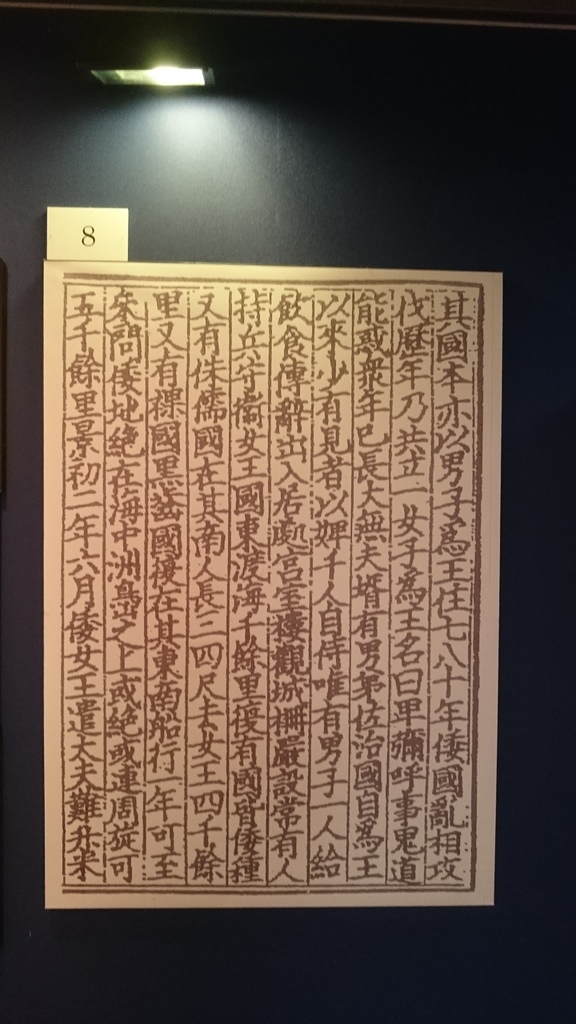 8
其國本亦以男子爲王住七八十年倭國亂相攻
伐歷年乃共立一女子爲王名曰卑彌呼事鬼道
能惑衆年已長大無夫壻有男弟佐治國自爲王
以來少有見者以婢千人自侍唯有男子一人給
飲食傳辭出入居處宫室樓觀城柵嚴設常有人
持兵守衞女王國東渡海千餘里復有國皆倭種
又有侏儒國在其南人長三四尺去女王四千餘
里又有裸國黑齒國復在其東南船行一年可至
參問倭地絶在海中洲㠀之上或絶或連周旋可
五千餘里景初二年六月倭女王遣大夫難升米